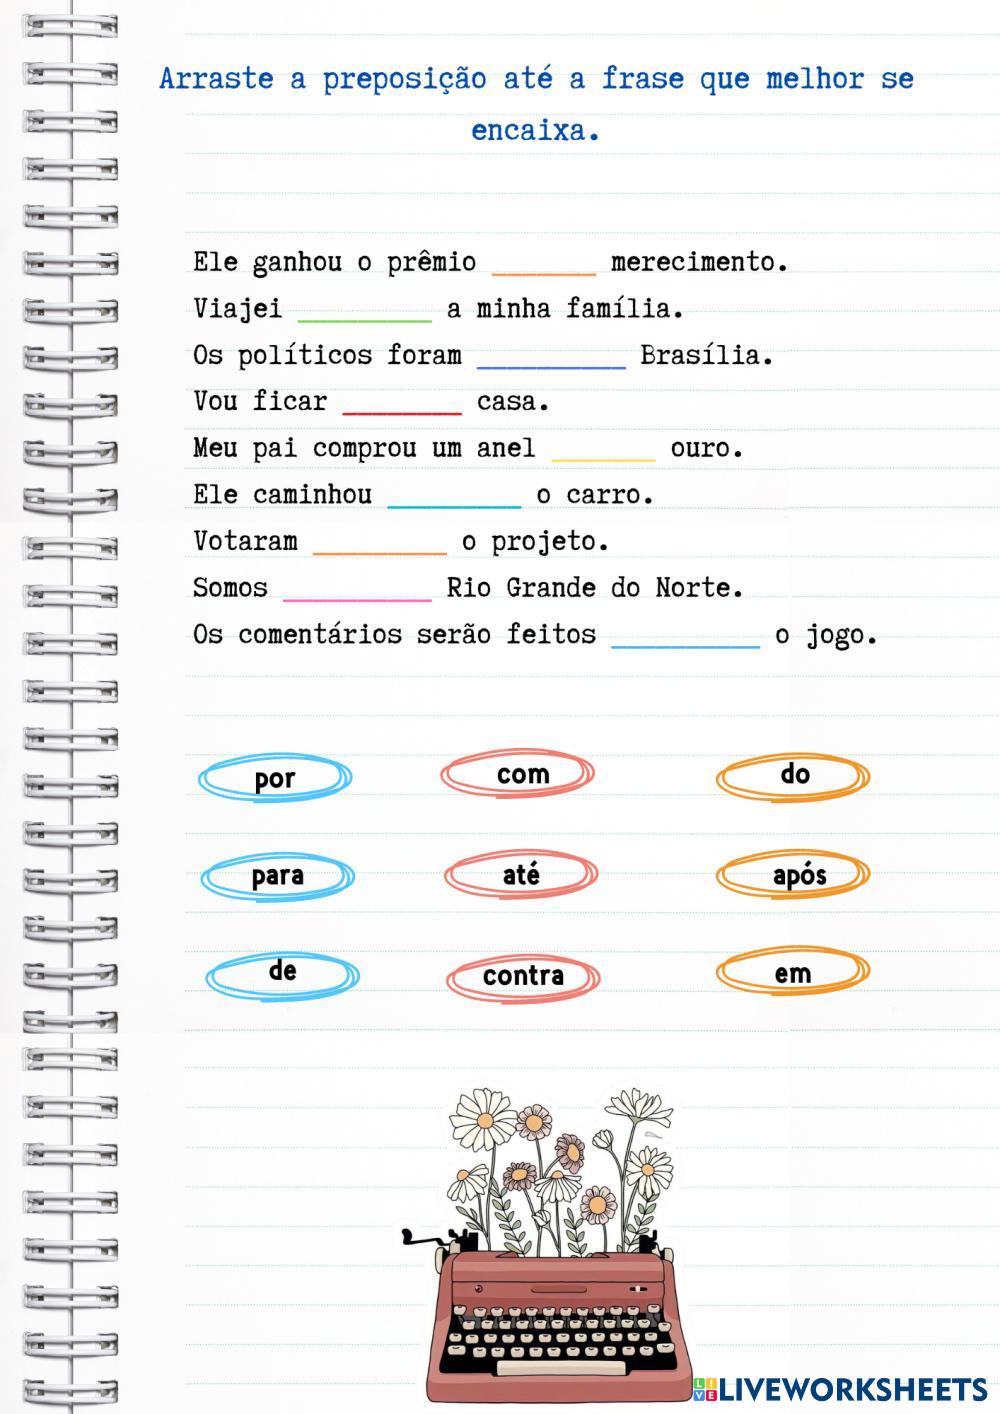 Arraste a preposição até a frase que melhor se
encaixa.
Ele ganhou o prêmio _______ merecimento.
Viajei _________ a minha família.
Os políticos foram __________ Brasília.
Vou ficar ________ casa.
Meu pai comprou um anel _______ ouro.
Ele caminhou _________ o carro.
Votaram _________ o projeto.
Somos __________ Rio Grande do Norte.
Os comentários serão feitos __________ o jogo.
por com do
para até após
de contra em
LIVEWORKSHEETS